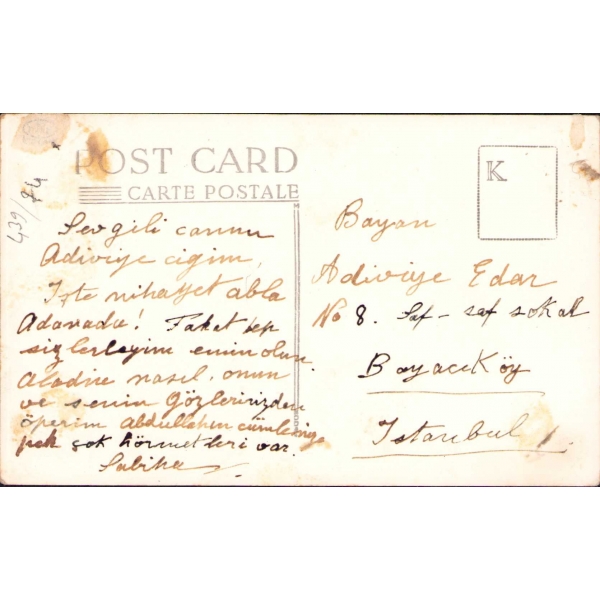 439/74
POST CARD
CARTE POSTALE
K
Sevgili canım
Adiviye ciğim,
İşte nihayet abla
Adanada! Fakat hep
sizlerleyim emin olun.
nasıl, onun
ve senin gözlerinizden
öperim Abdullahın cümlenize
pek çok hörmetleri var.
Sabiha
Bayan
Adiviye Edar
No 8. Saf-saf sokak
Boyacıköy
Istanbul